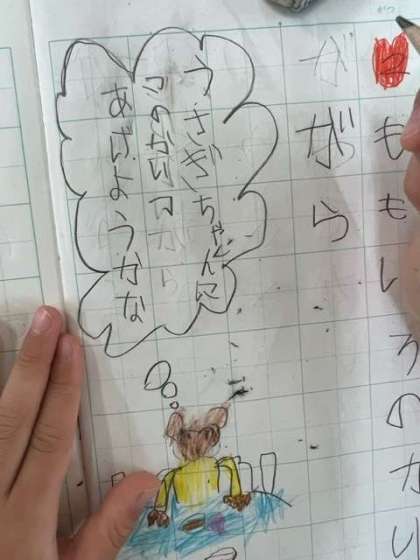 ももいろのかい
がら
うさぎちゃんに
このかいがら
あげようかな